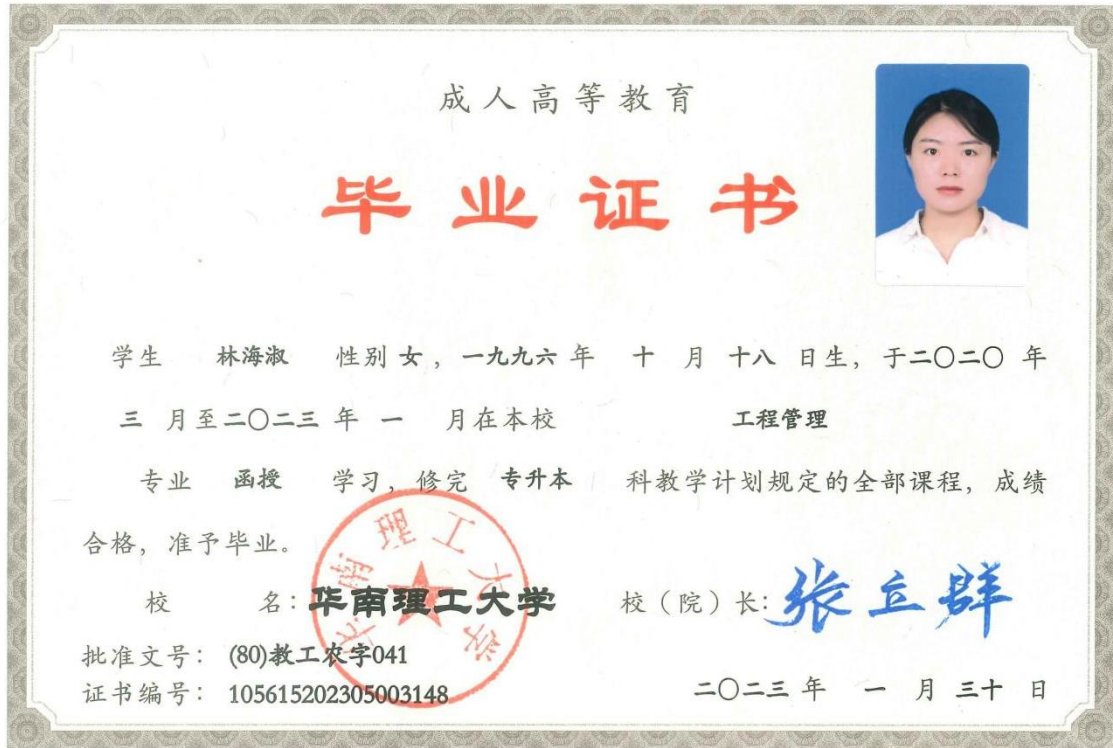 成人高等教育
毕业证书
学生 林海淑 性别 女，一九九六 年 十 月 十八 日生，于二〇二〇 年
三 月至二〇二三 年 一 月在本校 工程管理
专业 函授 学习，修完 专升本 科教学计划规定的全部课程，成绩
合格，准予毕业。
华南理工大学
校 名：华南理工大学 校（院）长：张立群
批准文号：(80)教工农字041
证书编号：105615202305003148 二〇二三 年 一 月 三十 日